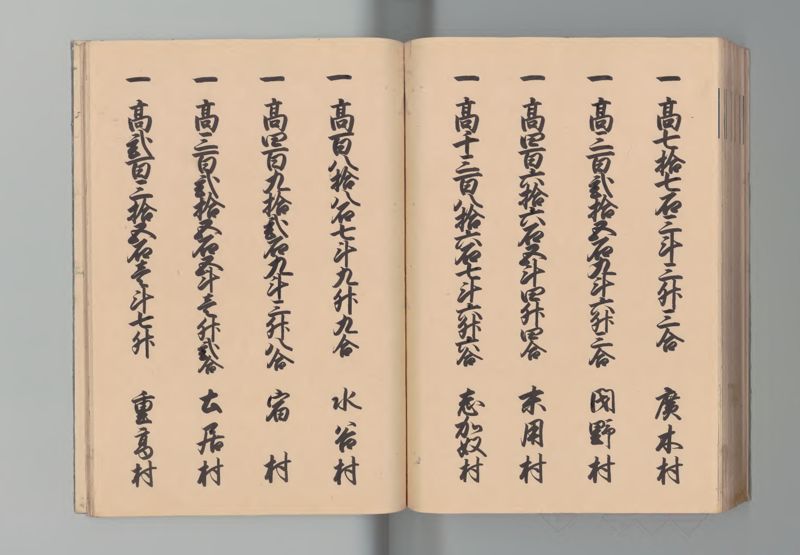 一 高七拾七石三斗三升三合 廣木村
一 高三百弐拾五石九斗六升三合 関野村
一 高四百六拾六石五斗四升四合 末用村
一 高千三百八拾六石七斗六升六合 志加奴村
一 高百八拾八石七斗九升九合 水谷村
一 高四百九拾弐石九斗三升八合 宿村
一 高三百弐拾五石五斗壱升弐合 土居村
一 高弐百三拾五石壱斗七升 重高村